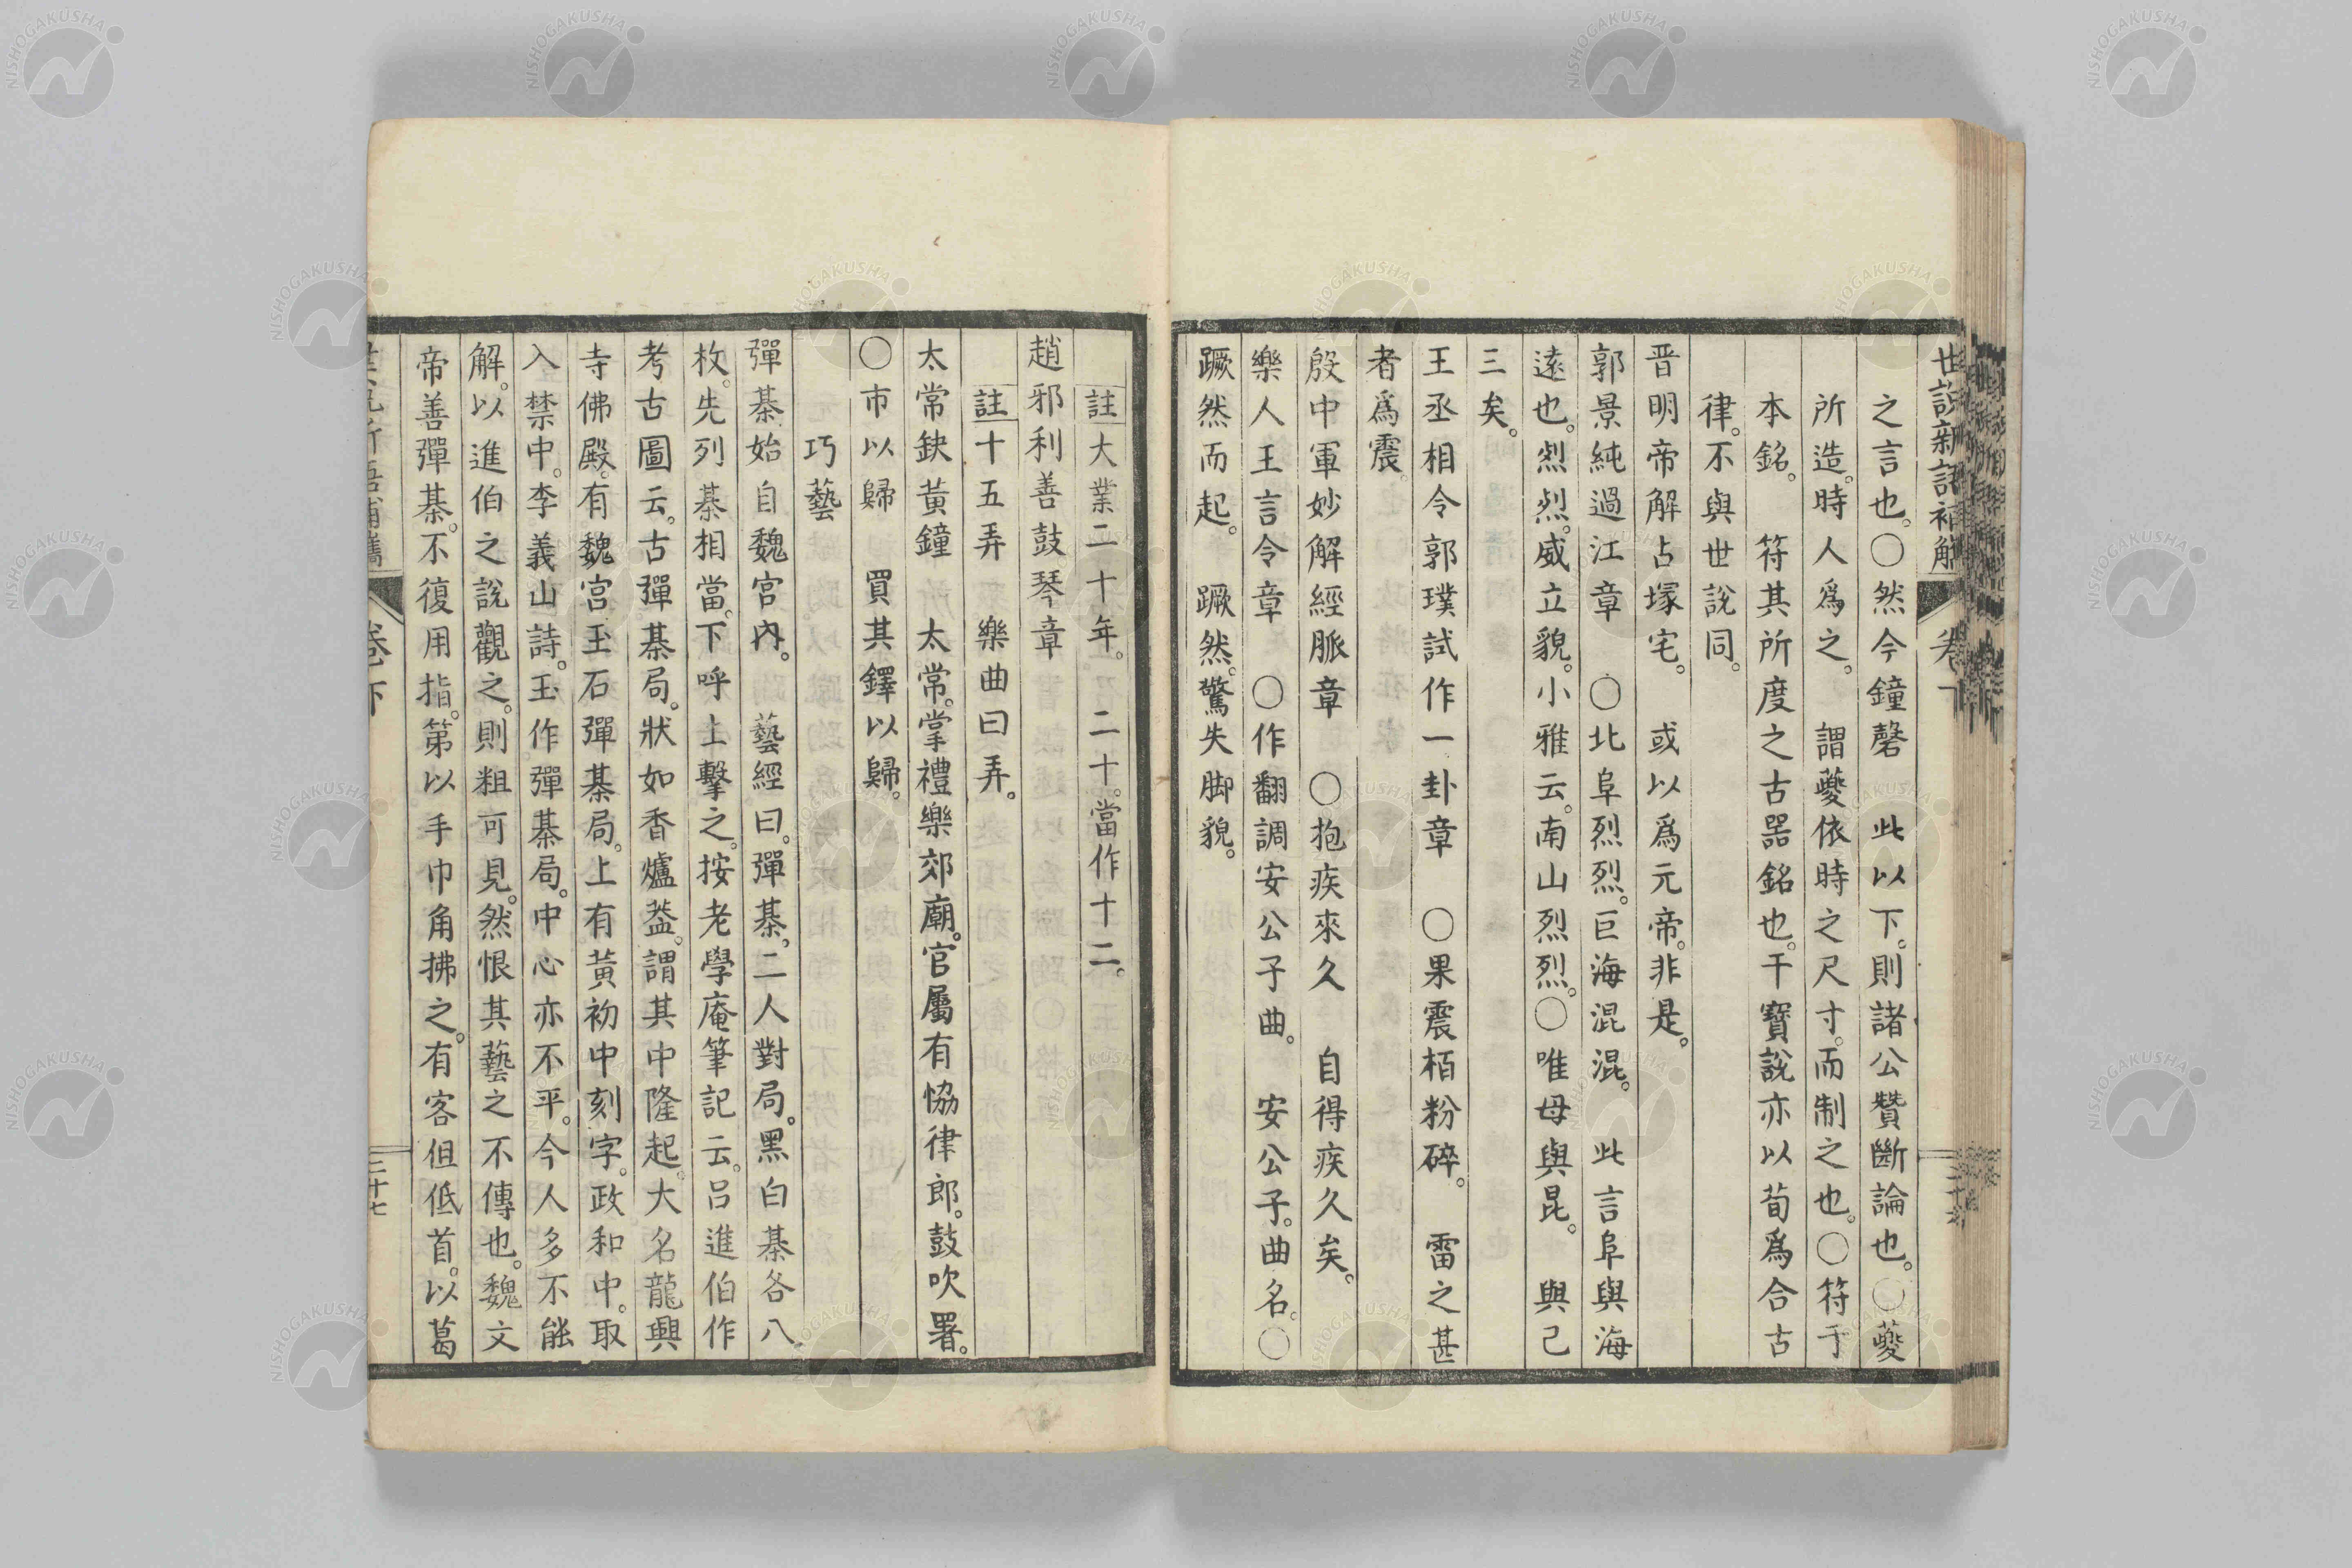 世說新語補觽 卷下
之言也。○然今鐘磬 此以下。則諸公贊斷論也。○夔
所造。時人爲之。 謂夔依時之尺寸。而制之也。○符于
本銘。 符其所度之古器銘也。干寶說亦以荀爲合古
律。不與世說同。
晋明帝解占塚宅。 或以爲元帝。非是。
郭景純過江章 ○北阜烈烈。巨海混混。 此言阜與海
遠也。烈烈。威立貌。小雅云。南山烈烈。○唯母與昆。 與己
三矣。
王丞相令郭璞試作一卦章 ○果震栢粉碎。 雷之甚
者爲震。
殷中軍妙解經脈章 ○抱疾來久 自得疾久矣。
樂人王言令章 ○作翻調安公子曲。 安公子。曲名。○
蹶然而起。 蹶然。驚失脚貌。
註大業二十年。 二十。當作十二。
趙邪利善鼓琴章
註十五弄 樂曲曰弄。
太常缺黃鐘 太常。掌禮樂郊廟。官屬有恊律郎。鼓吹署。
○市以歸 買其鐸以歸。
巧藝
彈棊始自魏宮內。 藝經曰。彈棊。二人對局。黑白棊各八
枚。先列棊相當。下呼上擊之。按老學庵筆記云。呂進伯作
考古圖云。古彈棊局。狀如香爐葢。謂其中隆起。大名龍興
寺佛殿。有魏宮玉石彈棊局。上有黃初中刻字。政和中。取
入禁中。李義山詩。玉作彈棊局。中心亦不平。今人多不能
解。以進伯之說觀之。則粗可見。然恨其藝之不傳也。魏文
帝善彈棊。不復用指。第以手巾角拂之。有客但低首。以葛
卷下 二十七
NISHOGAKUSHA